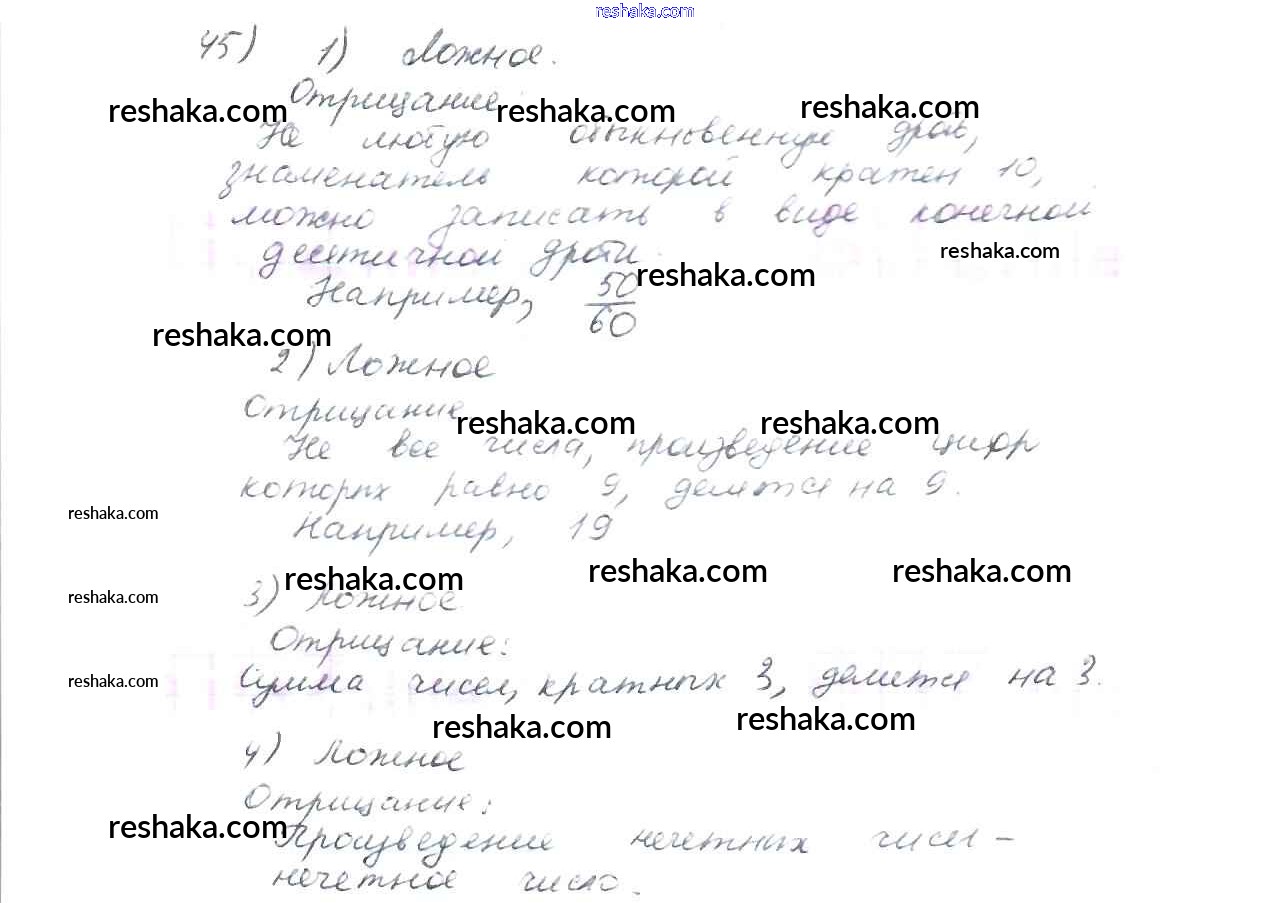 reshaka.com
45) 1) Ложное.
Отрицание
reshaka.com reshaka.com reshaka.com
Не любую обыкновенную дробь,
знаменатель которой кратен 10,
можно записать в виде конечной
reshaka.com
десятичной дроби.
reshaka.com
Например, 50/60
reshaka.com
2) Ложное
Отрицание
reshaka.com reshaka.com
Не все числа, произведение цифр
которых равно 9, делятся на 9.
reshaka.com
Например, 19
reshaka.com reshaka.com reshaka.com
reshaka.com
3) Ложное
Отрицание:
reshaka.com
Сумма чисел, кратных 3, делится на 3.
reshaka.com reshaka.com
4) Ложное
Отрицание:
reshaka.com
Произведение нечетных чисел –
нечетное число.